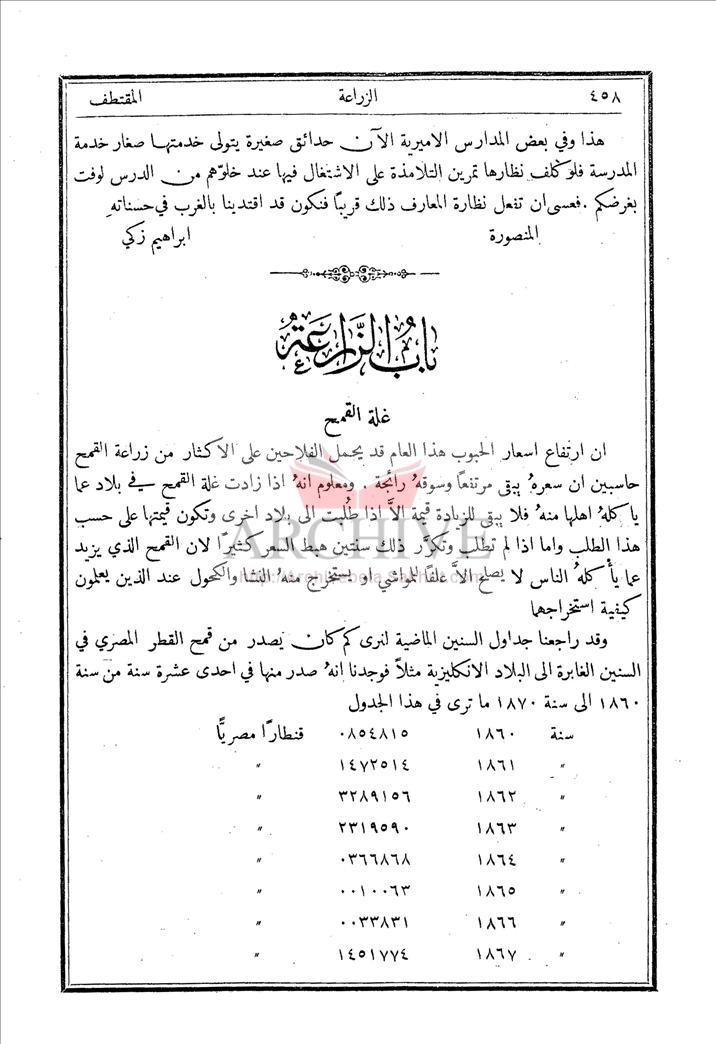 ٤٥٨ الزراعة المقتطف
هذا وفي بعض المدارس الاميرية الآن حدائق صغيرة يتولى خدمتها صغار خدمة
المدرسة فلو كلف نظارها تمرين التلامذة على الاشتغال فيها عند خلوّهم من الدرس لوفت
بغرضكم . فعسى ان تفعل نظارة المعارف ذلك قريبًا فنكون قد اقتدينا بالغرب في حسناته
المنصورة ابراهيم زكي
بَابُ الزِّرَاعَةِ
غلة القمح
ان ارتفاع اسعار الحبوب هذا العام قد يحمل الفلاحين على الاكثار من زراعة القمح
حاسبين ان سعرهُ يبقى مرتفعًا وسوقهُ رائجة . ومعلوم انهُ اذا زادت غلة القمح في بلاد عما
ياكلهُ اهلها منهُ فلا يبقى للزيادة قيمة الاَّ اذا طُلبت الى بلاد اخرى وتكون قيمتها على حسب
هذا الطلب واما اذا لم تطلب وتكرَّر ذلك سنتين هبط السعر كثيرًا لان القمح الذي يزيد
عما يأكلهُ الناس لا يصلح الاَّ علفًا للمواشي او يستخرج منهُ النشا والكحول عند الذين يعلمون
كيفية استخراجهما
وقد راجعنا جداول السنين الماضية لنرى كم كان يصدر من قمح القطر المصري في
السنين الغابرة الى البلاد الانكليزية مثلاً فوجدنا انهُ صدر منها في احدى عشرة سنة من سنة
١٨٦٠ الى سنة ١٨٧٠ ما ترى في هذا الجدول
سنة ١٨٦٠ ٠٨٥٤٨١٥ قنطارًا مصريًّا
〃 ١٨٦١ ١٤٧٢٥١٤ 〃
〃 ١٨٦٢ ٣٢٨٩١٥٦ 〃
〃 ١٨٦٣ ٢٣١٩٥٩٠ 〃
〃 ١٨٦٤ ٠٣٦٦٨٦٨ 〃
〃 ١٨٦٥ ٠٠١٠٠٦٣ 〃
〃 ١٨٦٦ ٠٠٣٣٨٣١ 〃
〃 ١٨٦٧ ١٤٥١٧٧٤ 〃
ARCHIVE